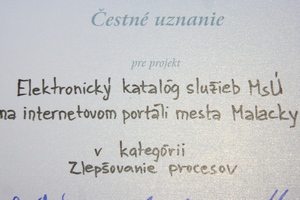 Čestné uznanie
pre projekt
Elektronický katalóg služieb MsÚ
na internetovom portáli mesta Malacky
v kategórii
Zlepšovanie procesov